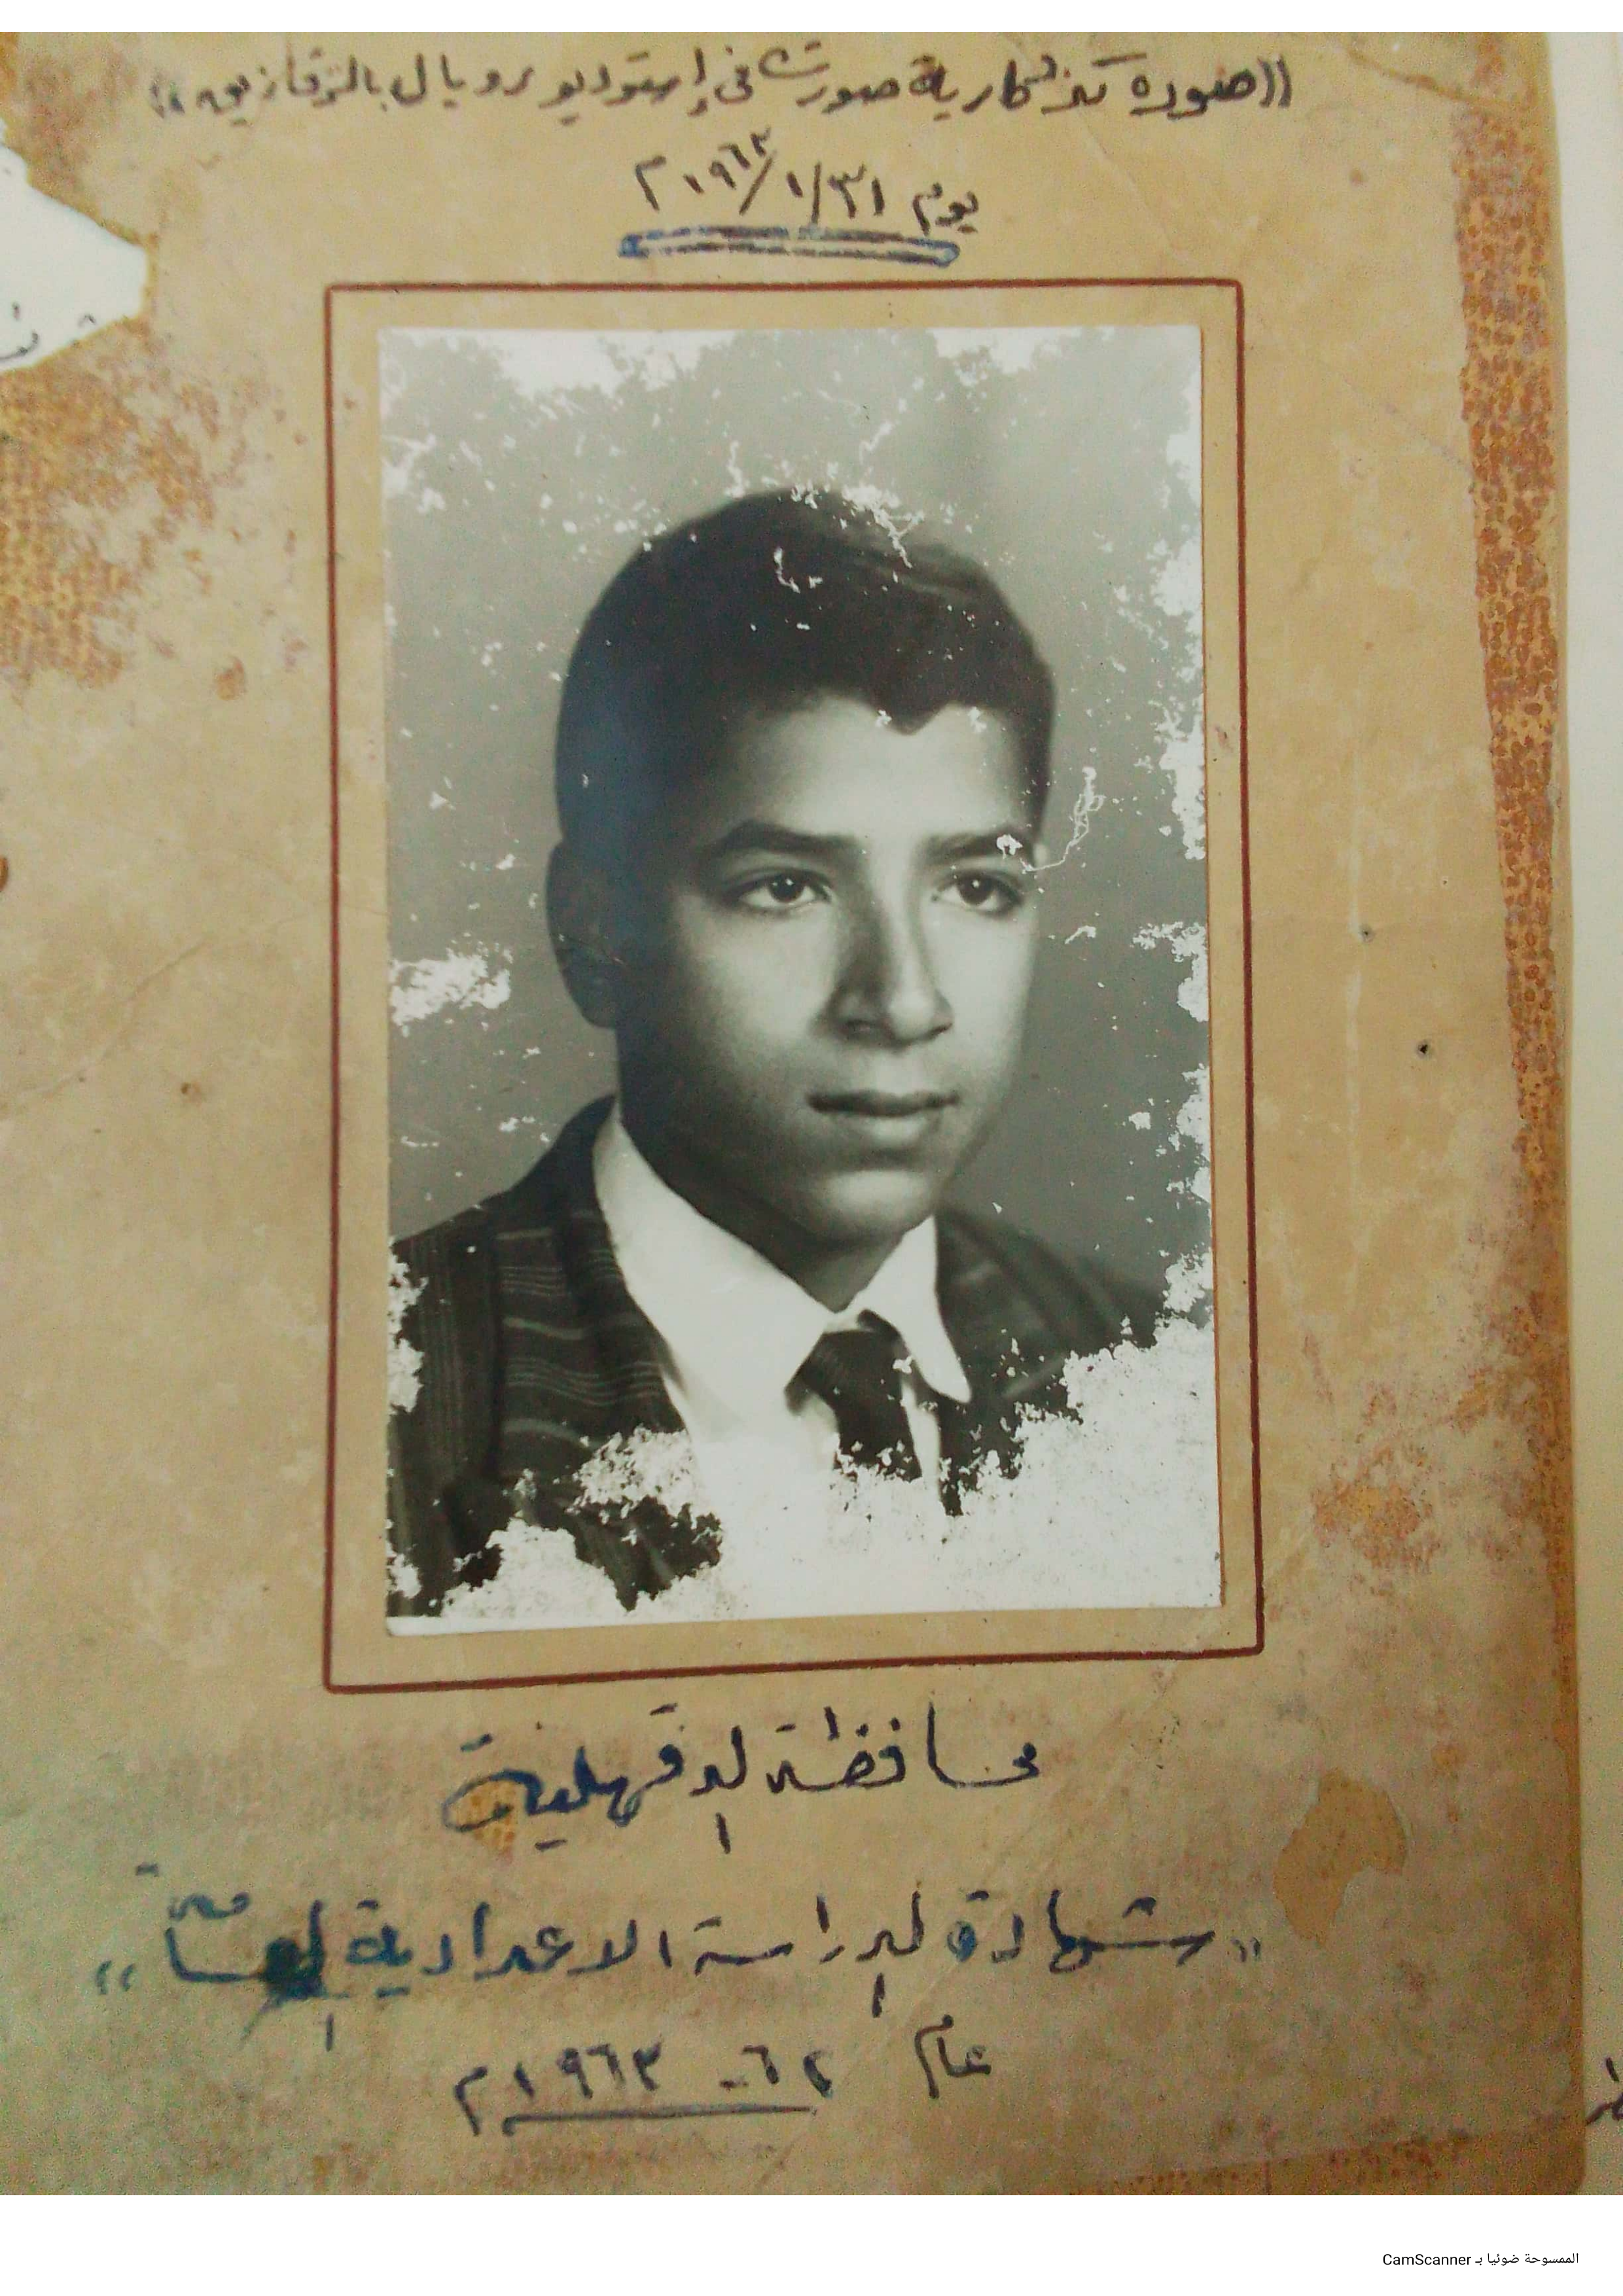 ((صوره تذكارية صورت فى إستوديو رويال بالزقازيق))
يوم ٣١/١/١٩٦٣م
محافظة الدقهلية
"شهادة الدراسة الاعدادية العامة"
عام ٦٢ - ١٩٦٣م
الممسوحة ضوئيا بـ CamScanner